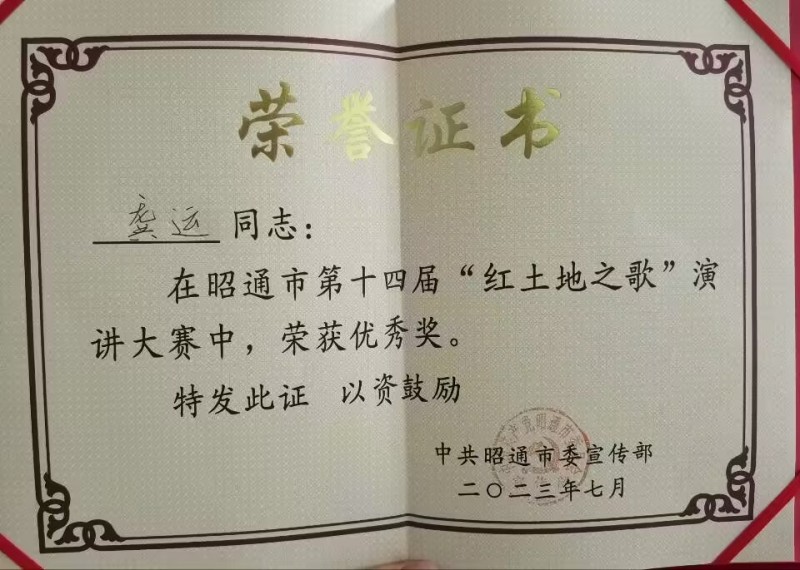 荣誉证书
龚运 同志：
在昭通市第十四届“红土地之歌”演
讲大赛中，荣获优秀奖。
特发此证 以资鼓励
中共昭通市委宣传部
二〇二三年七月